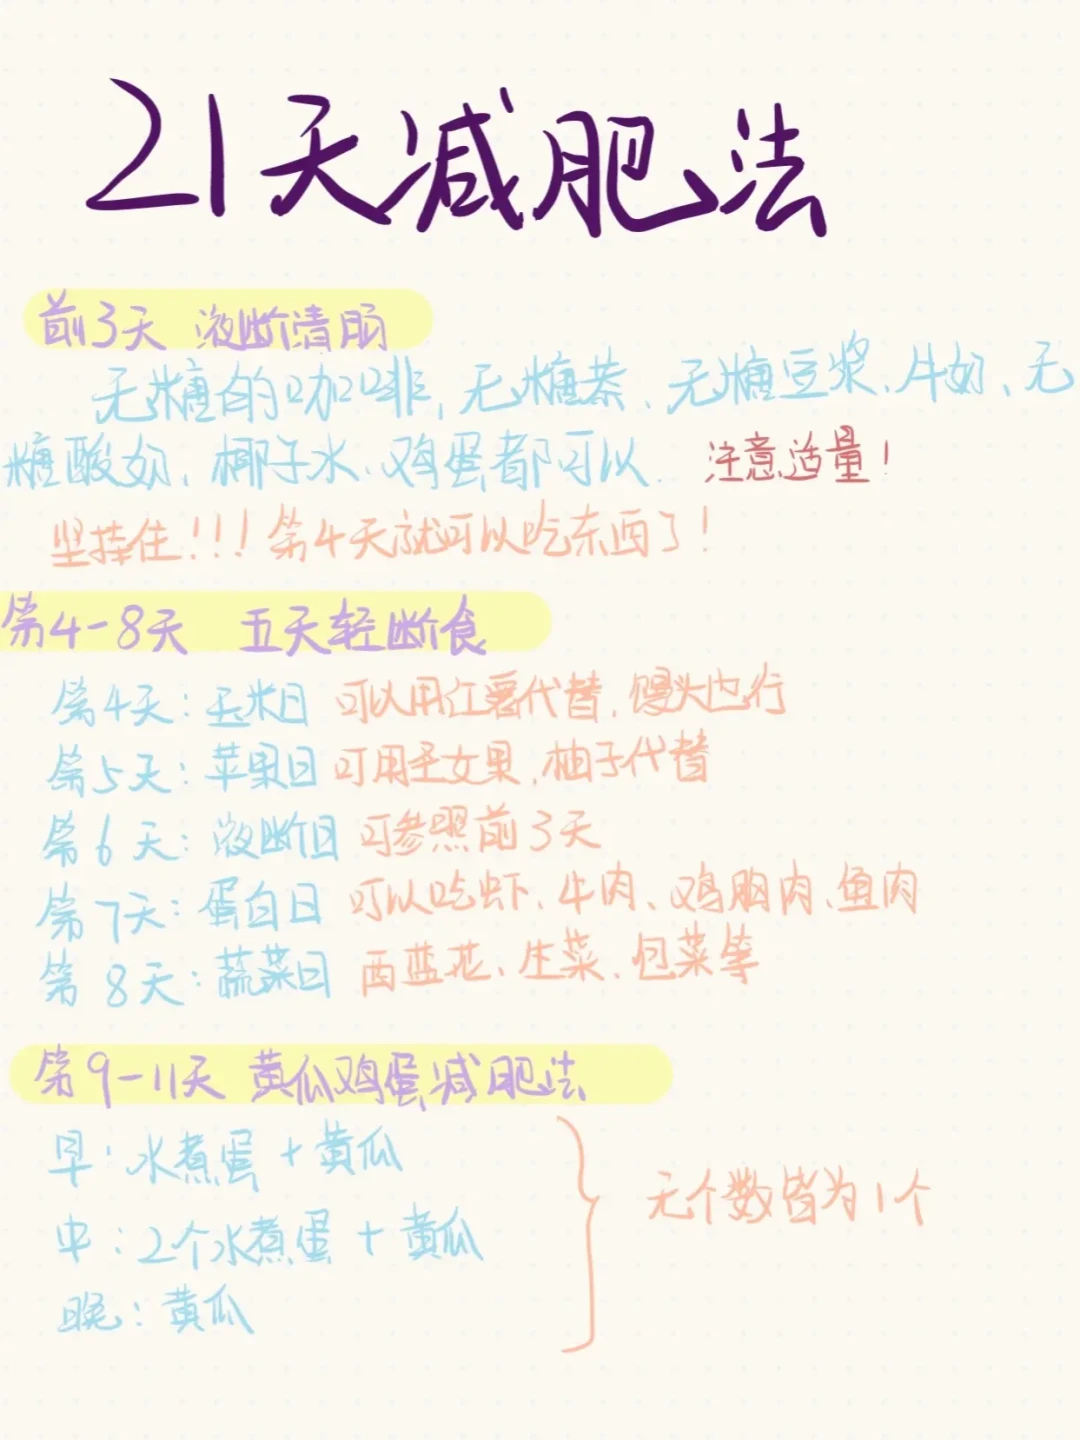 21天减肥法
前3天 液断清肠
无糖的咖啡,无糖茶、无糖豆浆、牛奶、无
糖酸奶、椰子水、鸡蛋都可以. 注意适量!
坚持住!!!第4天就可以吃东西了!
第4-8天 五天轻断食
第4天:玉米日 可以用红薯代替,馒头也行
第5天:苹果日 可用圣女果,柚子代替
第6天:液断日 可参照前3天
第7天:蛋白日 可以吃虾、牛肉、鸡胸肉、鱼肉
第8天:蔬菜日 西蓝花、生菜、包菜等
第9-11天 黄瓜鸡蛋减肥法
早:水煮蛋+黄瓜
中:2个水煮蛋+黄瓜
晚:黄瓜
无个数皆为1个